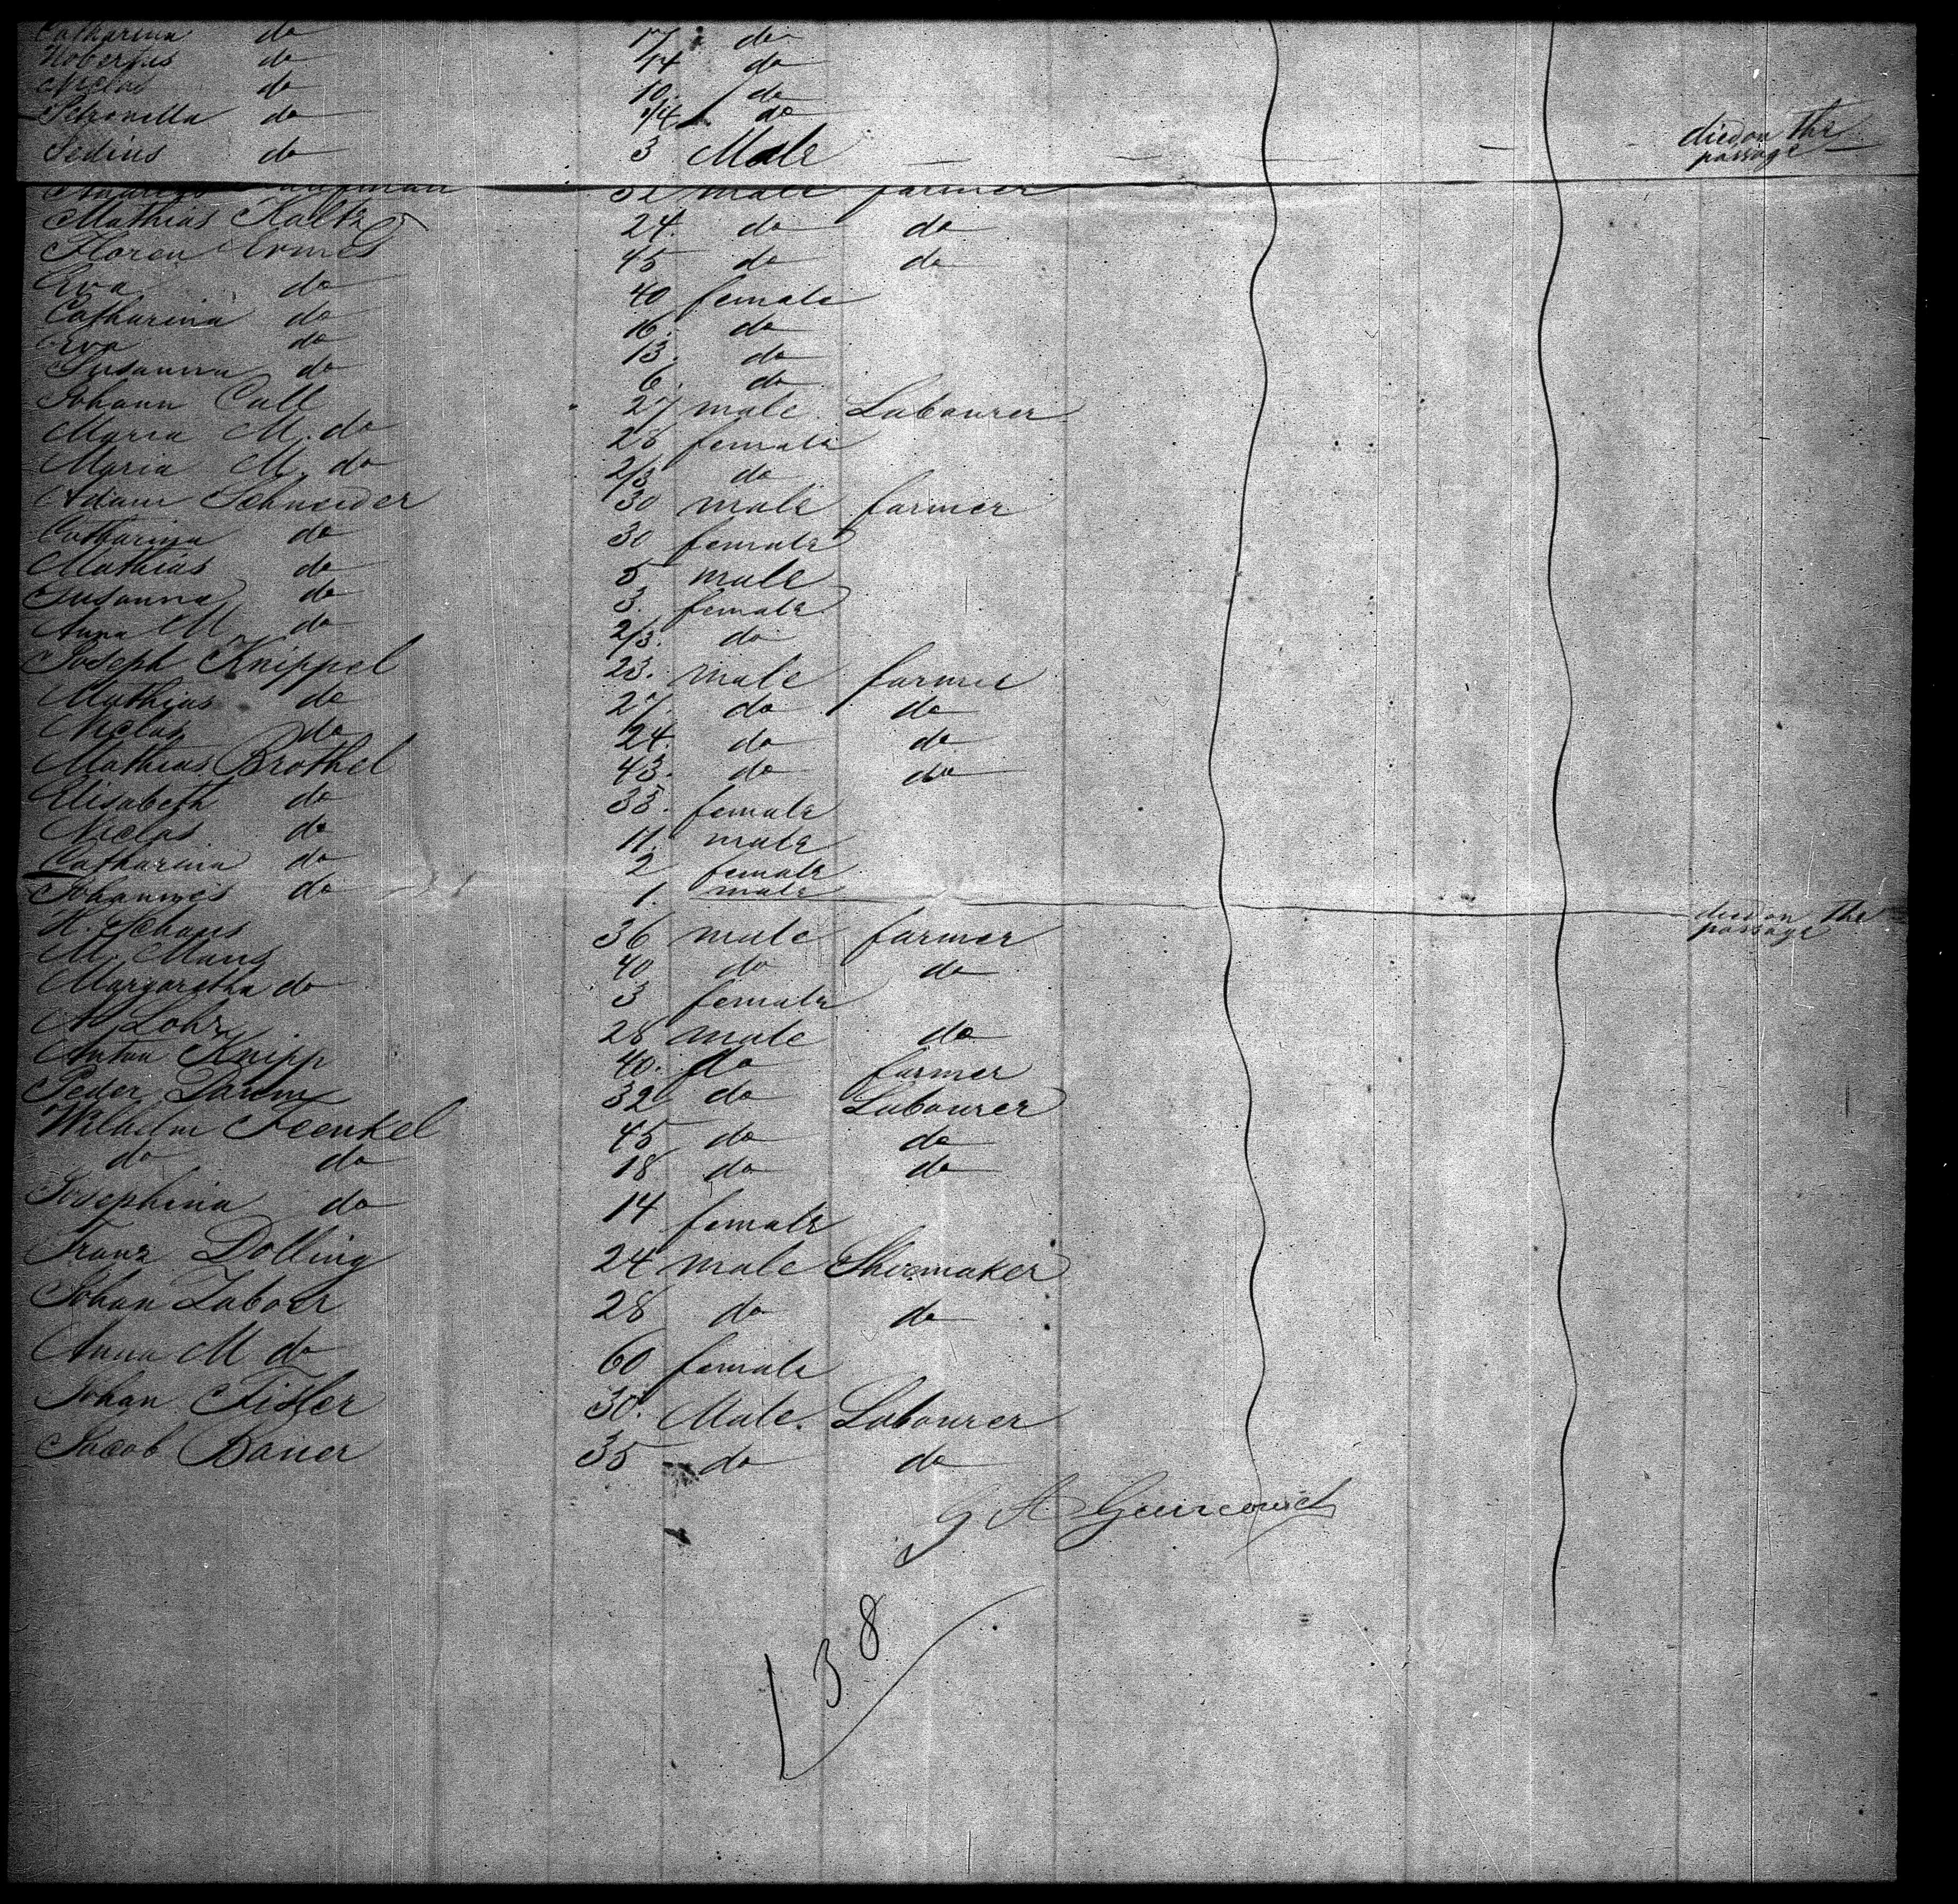 Catharina do 17 do
Hobertus do 14 do
Niclas do 10. do
Petronilla do 3/4 do
Sedius do 3 Male — — — — died on the passage
32 male farmer
Mathias Kaltz 24. do do
Floren Ermes 45 do do
Eva do 40 female
Catharina do 16. do
Eva do 13. do
Susanna do 6. do
Johann Call 27 male Labourer
Maria M. do 28 female
Maria M. do 2/3 do
Adam Schneider 30 male farmer
Catharina do 30 female
Mathias do 5 male
Susanna do 3. female
Anna M do 2/3. do
Joseph Knippel 23. male farmer
Mathias do 27. do do
Niclas do 24. do do
Mathias Brothel 43. do do
Elisabeth do 33. female
Niclas do 11. male
Catharina do 2 female
Johannes do 1. male died on the passage
H. Schaus 36 male farmer
M. Maus 40 do do
Margaretha do 3 female
Lohr 28 male do
Anton Knipp 40. do farmer
Peder 32 do Labourer
Wilhelm Feenkel 45 do do
do do 18 do do
Josephina do 14 female
Franz Dolling 24 male Shoemaker
Johan 28 do do
Anna M do 60 female
Johan Fisler 30. Male. Labourer
Jacob Bauer 35 do do
G H
138